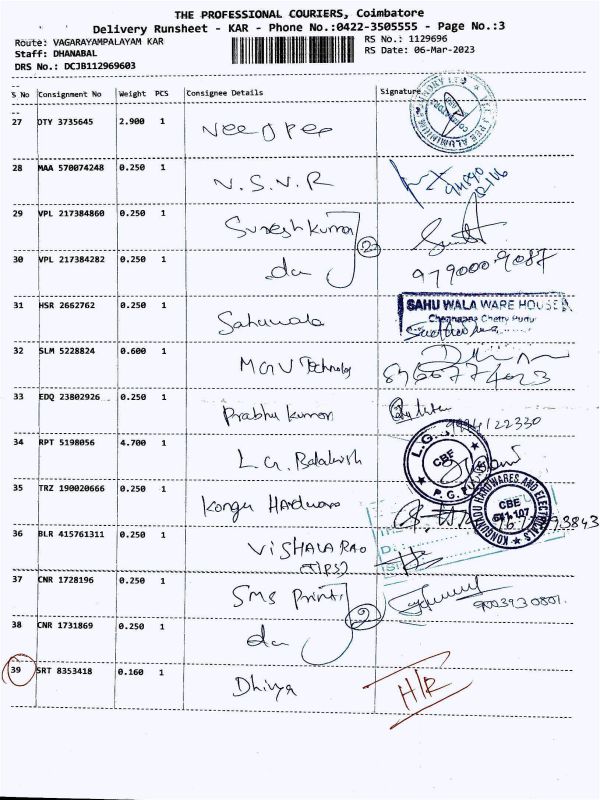 THE PROFESSIONAL COURIERS, Coimbatore
Delivery Runsheet - KAR - Phone No.:0422-3505555 - Page No.:3
Route: VAGARAYAMPALAYAM KAR
RS No.: 1129696
Staff: DHANABAL
RS Date: 06-Mar-2023
DRS No.: DCJB112969603
S No Consignment No Weight PCS Consignee Details Signature
27 DTY 3735645 2.900 1
28 MAA 570074248 0.250 1 N.S.N.R
29 VPL 217384860 0.250 1 Sureshkumar
30 VPL 217384282 0.250 1 do 2
9790009087
31 HSR 2662762 0.250 1 Sahuwala
SAHU WALA WARE HOUSE
32 SLM 5228824 0.600 1 MGV Technology
33 EDQ 23802926 0.250 1 Prabhu Kumar
9994122330
34 RPT 5198056 4.700 1 L.G. Balakrish
L.G. CBE
35 TRZ 190020666 0.250 1 Kongu Hardware
KONGUNADU HARDWARES AND ELECTRICALS CBE 641 107
36 BLR 415761311 0.250 1 VISHALA RAO
(TIPS)
37 CNR 1728196 0.250 1 SMS Print
9003930801.
38 CNR 1731869 0.250 1 do 2
39 SRT 8353418 0.160 1 Dhivya H/R